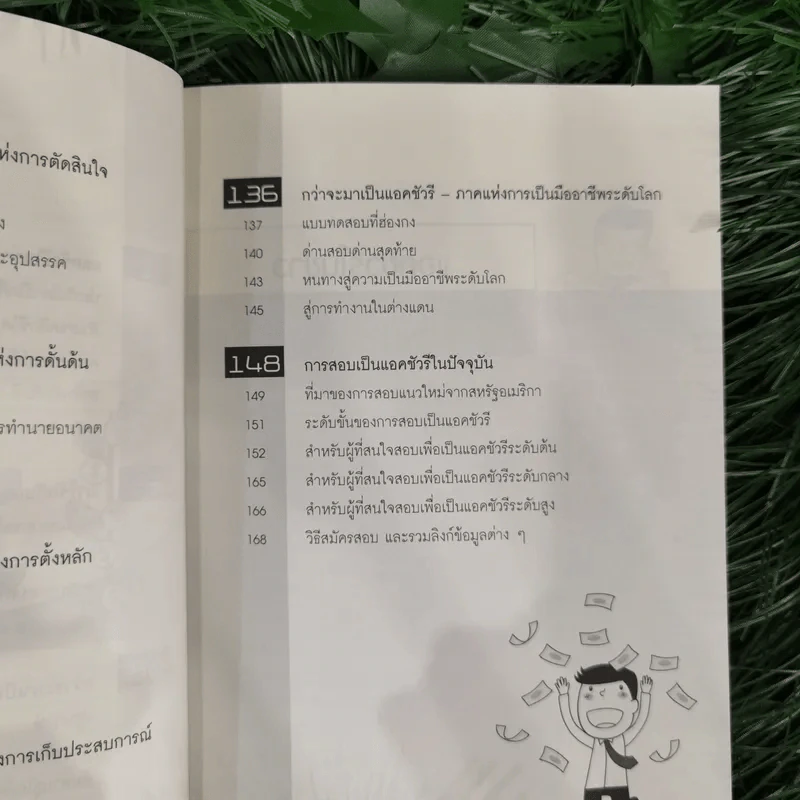 แห่งการตัดสินใจ
อุปสรรค
แห่งการดั้นด้น
การทำนายอนาคต
การตั้งหลัก
การเก็บประสบการณ์
136 กว่าจะมาเป็นแอคชัวรี – ภาคแห่งการเป็นมืออาชีพระดับโลก
137 แบบทดสอบที่ฮ่องกง
140 ด่านสอบด่านสุดท้าย
143 หนทางสู่ความเป็นมืออาชีพระดับโลก
145 สู่การทำงานในต่างแดน
148 การสอบเป็นแอคชัวรีในปัจจุบัน
149 ที่มาของการสอบแนวใหม่จากสหรัฐอเมริกา
151 ระดับชั้นของการสอบเป็นแอคชัวรี
152 สำหรับผู้ที่สนใจสอบเพื่อเป็นแอคชัวรีระดับต้น
165 สำหรับผู้ที่สนใจสอบเพื่อเป็นแอคชัวรีระดับกลาง
166 สำหรับผู้ที่สนใจสอบเพื่อเป็นแอคชัวรีระดับสูง
168 วิธีสมัครสอบ และรวมลิงก์ข้อมูลต่าง ๆ